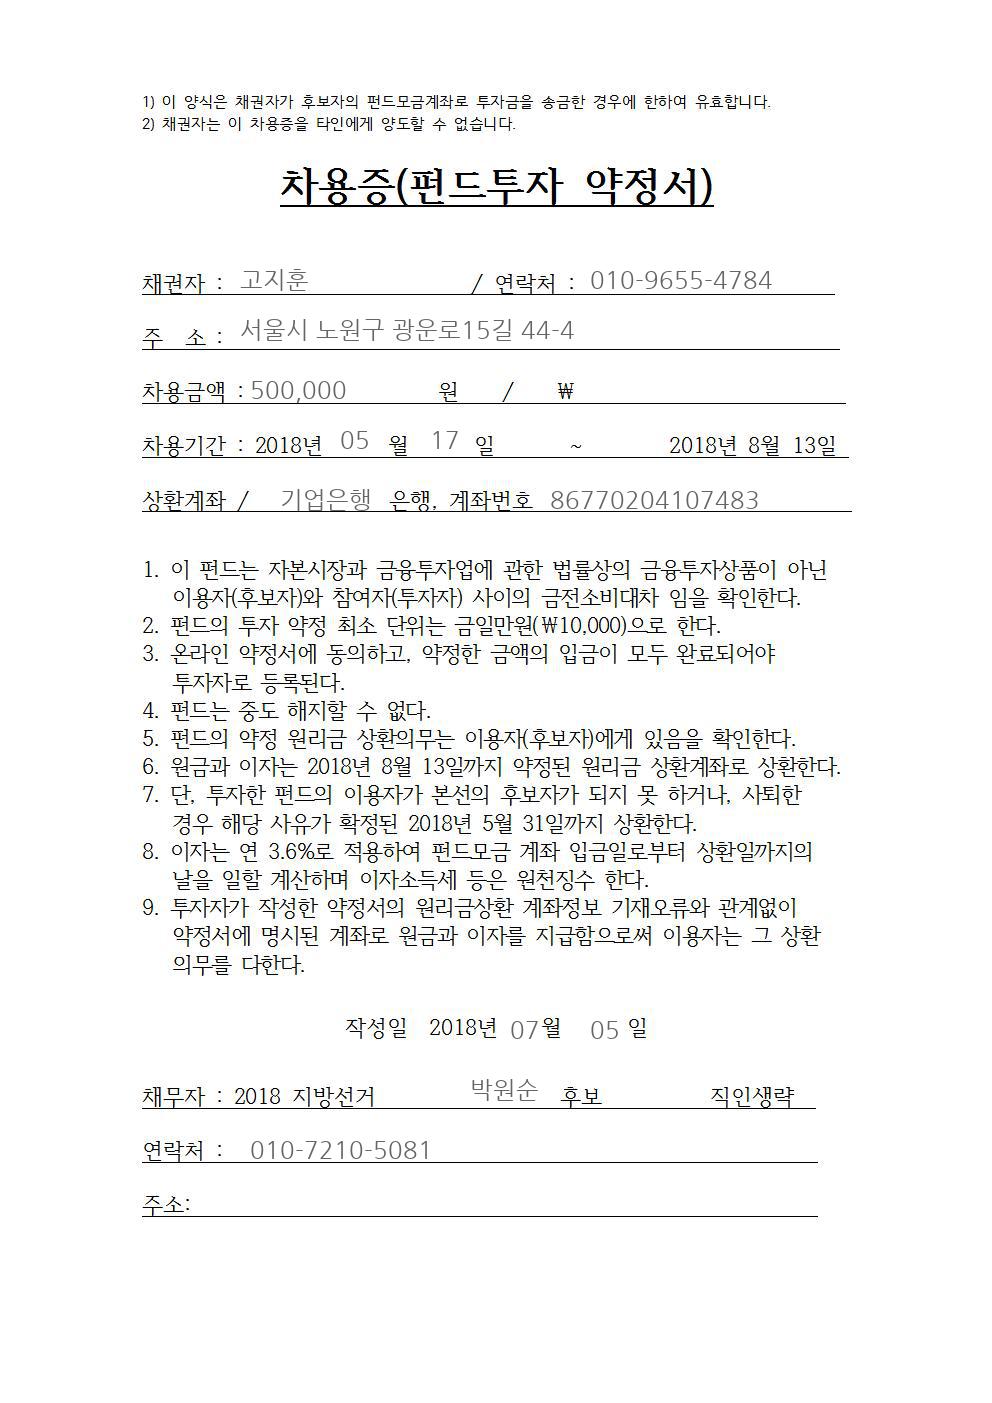 1) 이 양식은 채권자가 후보자의 펀드모금계좌로 투자금을 송금한 경우에 한하여 유효합니다.
2) 채권자는 이 차용증을 타인에게 양도할 수 없습니다.
차용증(펀드투자 약정서)
채권자 : 고지훈 / 연락처 : 010-9655-4784
주 소 : 서울시 노원구 광운로15길 44-4
차용금액 : 500,000 원 / ₩
차용기간 : 2018년 05 월 17 일 ~ 2018년 8월 13일
상환계좌 / 기업은행 은행, 계좌번호 86770204107483
1. 이 펀드는 자본시장과 금융투자업에 관한 법률상의 금융투자상품이 아닌
이용자(후보자)와 참여자(투자자) 사이의 금전소비대차 임을 확인한다.
2. 펀드의 투자 약정 최소 단위는 금일만원(₩10,000)으로 한다.
3. 온라인 약정서에 동의하고, 약정한 금액의 입금이 모두 완료되어야
투자자로 등록된다.
4. 펀드는 중도 해지할 수 없다.
5. 펀드의 약정 원리금 상환의무는 이용자(후보자)에게 있음을 확인한다.
6. 원금과 이자는 2018년 8월 13일까지 약정된 원리금 상환계좌로 상환한다.
7. 단, 투자한 펀드의 이용자가 본선의 후보자가 되지 못 하거나, 사퇴한
경우 해당 사유가 확정된 2018년 5월 31일까지 상환한다.
8. 이자는 연 3.6%로 적용하여 펀드모금 계좌 입금일로부터 상환일까지의
날을 일할 계산하며 이자소득세 등은 원천징수 한다.
9. 투자자가 작성한 약정서의 원리금상환 계좌정보 기재오류와 관계없이
약정서에 명시된 계좌로 원금과 이자를 지급함으로써 이용자는 그 상환
의무를 다한다.
작성일 2018년 07월 05 일
채무자 : 2018 지방선거 박원순 후보 직인생략
연락처 : 010-7210-5081
주소: